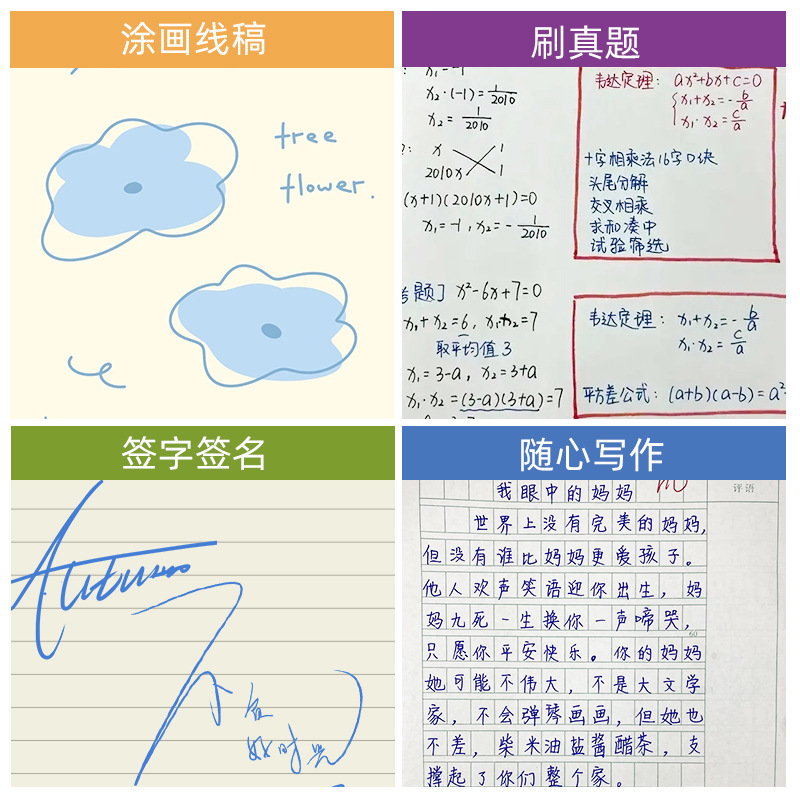 涂画线稿
tree
flower.
刷真题
x₁=-1
x₂·(-1)=1/2010
x₂=1/2010
x 1
2010x 1
(x+1)(2010x+1)=0
x₁=-1, x₂=-1/2010
韦达定理: ax²+bx+c=0
x₁+x₂=-b/a
x₁·x₂=c/a
十字相乘法16字口诀
头尾分解
交叉相乘
求和凑中
试验筛选
考题] x²-6x+7=0
x₁+x₂=6, x₁·x₂=7
取平均值3
x₁=3-a, x₂=3+a
x₁·x₂=(3-a)(3+a)=7
韦达定理: x₁+x₂=-b/a
x₁·x₂=c/a
平方差公式: (a+b)(a-b)=a²
签字签名
Autumn
好时光
随心写作
评语
我眼中的妈妈
世界上没有完美的妈妈,
但没有谁比妈妈更爱孩子。
他人欢声笑语迎你出生, 妈
妈九死一生换你一声啼哭,
60
只愿你平安快乐。你的妈妈
她可能不伟大, 不是大文学
家, 不会弹琴画画, 但她也
不差, 柴米油盐酱醋茶, 支
撑起了你们整个家。